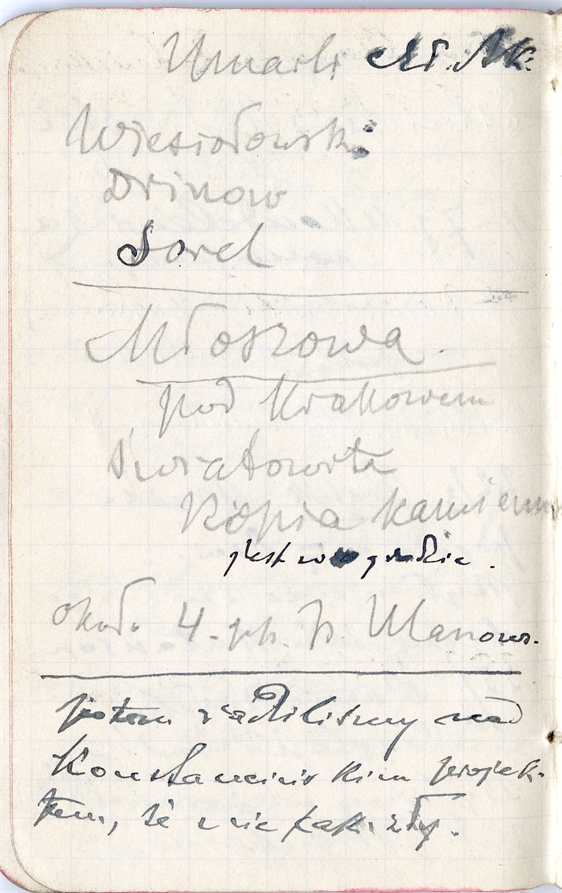 Umarli
Wiesiołowski
Drinow
Sorel
Młoszowa.
pod Krakowem
Światowita
Kopia kamienna
jest w ogrodzie.
około 4. p. Ulanows.
potem radziliśmy nad
Konstancińskim projek-
tem, że nie tak zły.